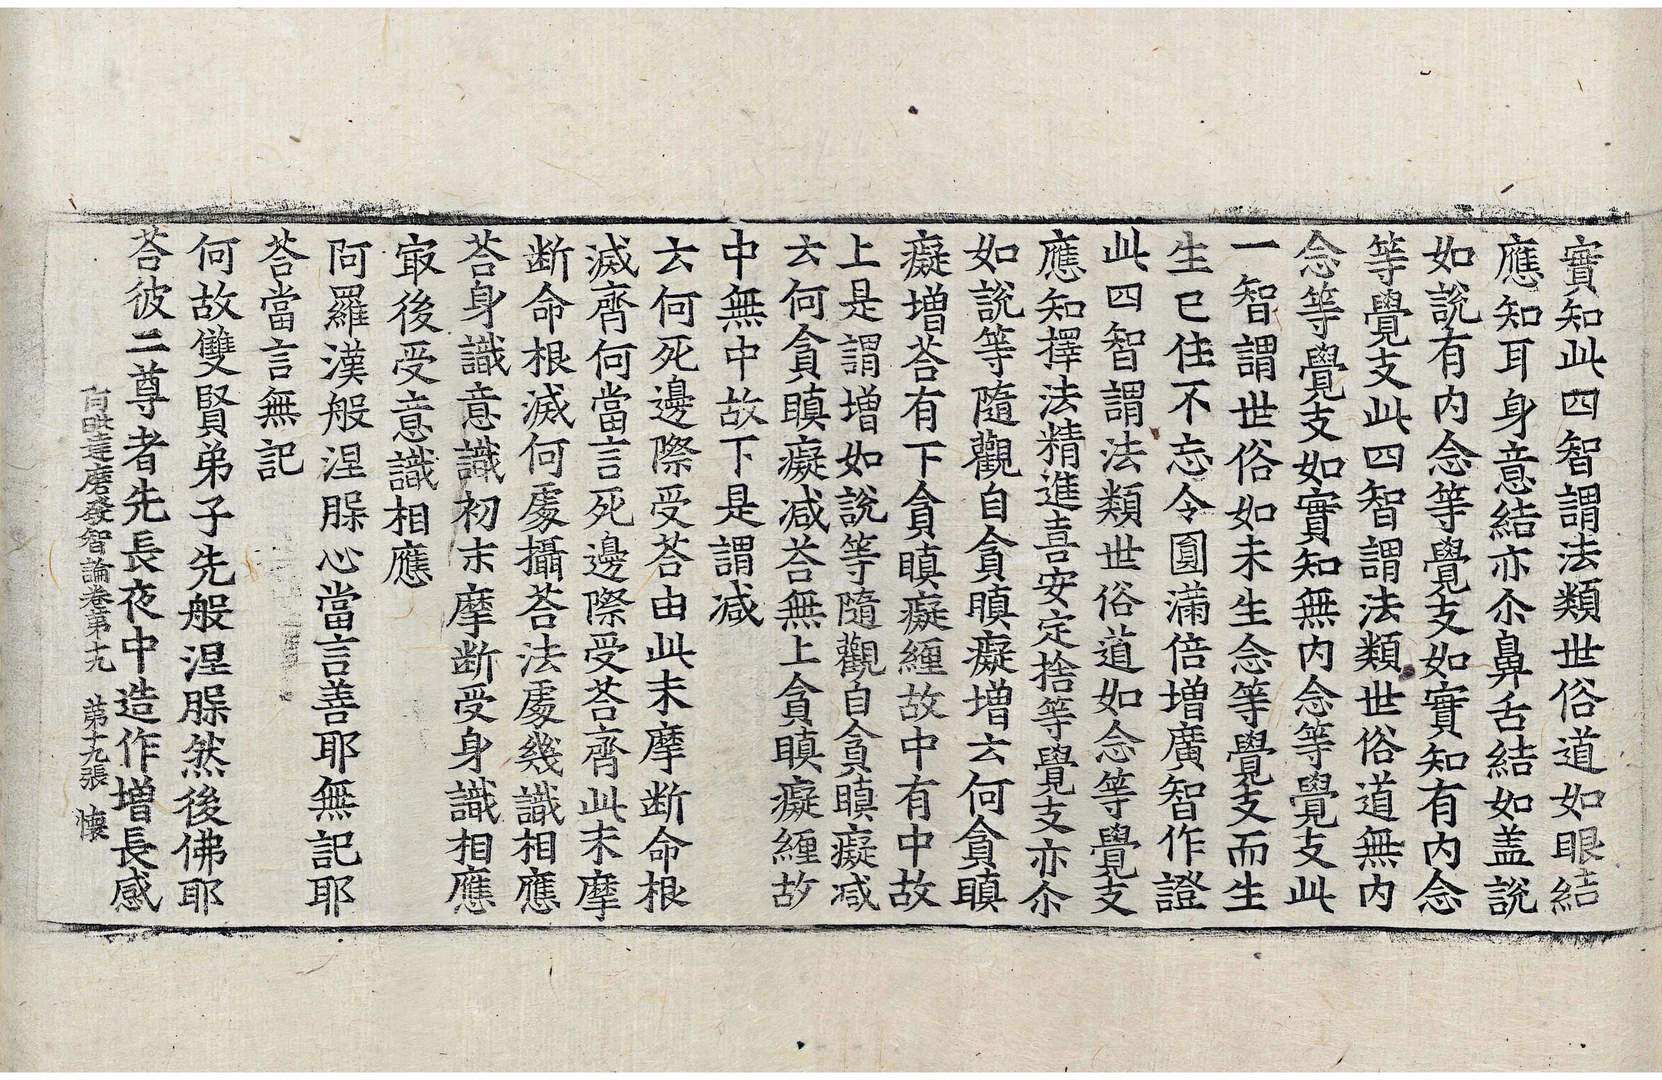 實知此四智謂法類世俗道如眼結
應知耳身意結亦尒鼻舌結如盖說
如說有內念等覺支如實知有內念
等覺支此四智謂法類世俗道無內
念等覺支如實知無內念等覺支此
一智謂世俗如未生念等覺支而生
生已住不忘令圓滿倍增廣智作證
此四智謂法類世俗道如念等覺支
應知擇法精進喜安定捨等覺支亦尒
如說等隨觀自貪瞋癡增云何貪瞋
癡增荅有下貪瞋癡纏故中有中故
上是謂增如說等隨觀自貪瞋癡減
云何貪瞋癡減荅無上貪瞋癡纏故
中無中故下是謂減
云何死邊際受荅由此末摩断命根
滅齊何當言死邊際受荅齊此末摩
断命根滅何處攝荅法處幾識相應
荅身識意識初末摩断受身識相應
㝡後受意識相應
阿羅漢般涅槃心當言善耶無記耶
荅當言無記
何故雙賢弟子先般涅槃然後佛耶
荅彼二尊者先長夜中造作增長感
阿毗達磨發智論卷第十九 第十九張 懐